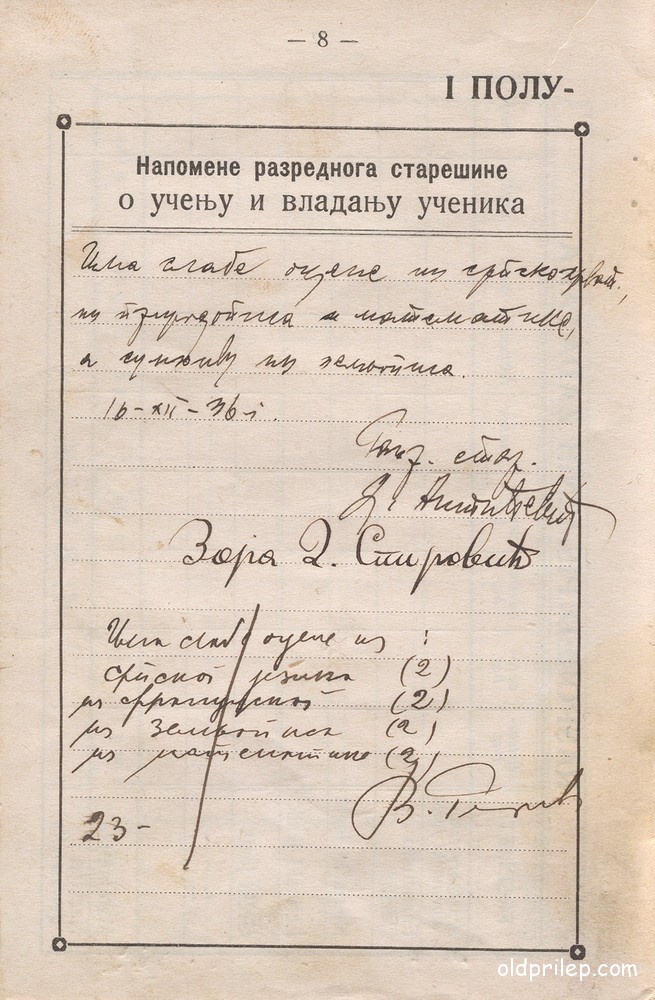 — 8 —
I ПОЛУ-
Напомене разреднога старешине
о учењу и владању ученика
Има слабе оцене из српскохрват.,
из природописа и математике,
а сумњиву из земљописа.
16-XII-36 г.
Разр. стар.
Зора Д. Спировић
Има слабе оцене из :
српског језика (2)
из француског (2)
из земљописа (2)
из математике (2)
В.
23-
oldprilep.com